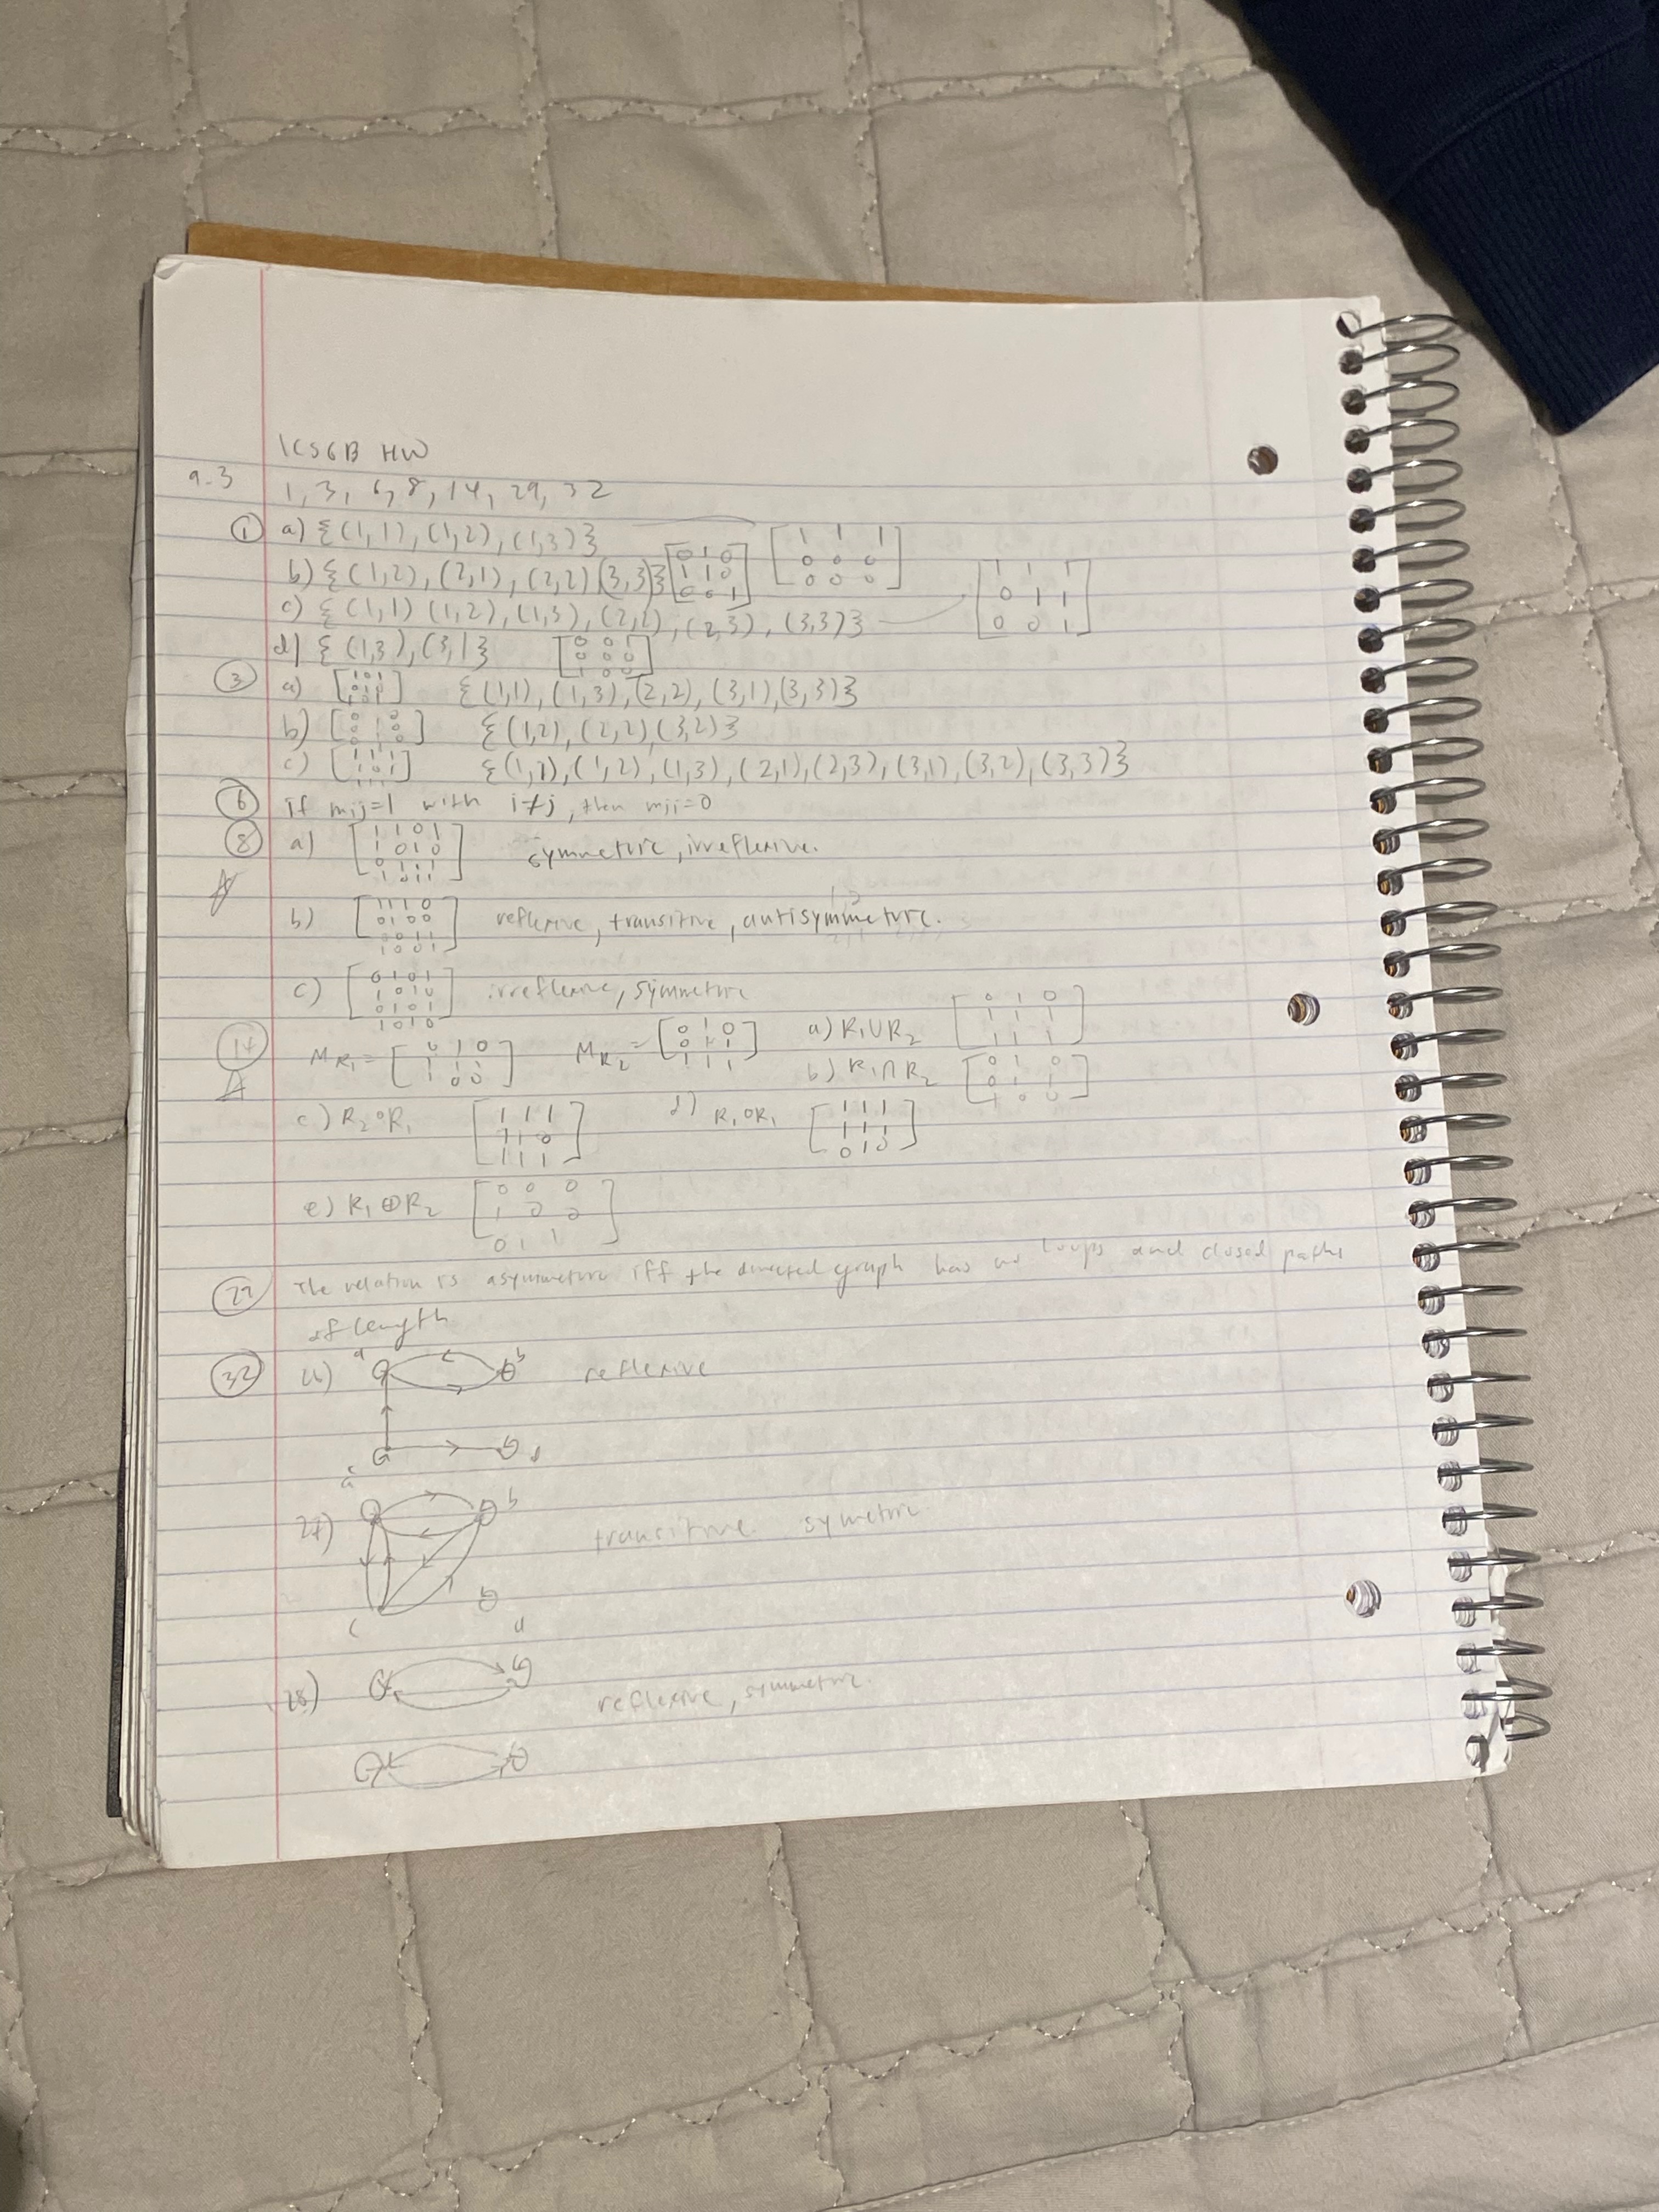 ICS6B HW
9.3 1, 3, 6, 8, 14, 29, 32
① a) {(1,1), (1,2), (1,3)} [1 1 1
0 0 0
0 0 0]
b) {(1,2), (2,1), (2,2) (3,3)} [0 1 0
1 1 0
0 0 1]
c) {(1,1) (1,2), (1,3), (2,2), (2,3), (3,3)} [1 1 1
0 1 1
0 0 1]
d) {(1,3), (3,1} [0 0 1
0 0 0
1 0 0]
③ a) [1 0 1
0 1 0
1 0 1] {(1,1), (1,3), (2,2), (3,1) (3,3)}
b) [0 1 0
0 1 0
0 1 0] {(1,2), (2,2) (3,2)}
c) [1 1 1
1 0 1
1 1 1] {(1,1), (1,2), (1,3), (2,1), (2,3), (3,1), (3,2), (3,3)}
⑥ if mij=1 with i≠j, then mji=0
⑧ a) [1 1 0 1
1 0 1 0
0 1 1 1
1 0 1 1] symmetric, irreflexive.
b) [1 1 1 0
0 1 0 0
0 0 1 1
1 0 0 1] reflexive, transitive, antisymmetric.
c) [0 1 0 1
1 0 1 0
0 1 0 1
1 0 1 0] irreflexive, symmetric
⑭ MR1 = [0 1 0
1 1 1
1 0 0] MR2 = [0 1 0
0 1 1
1 1 1] a) R1∪R2 [0 1 0
1 1 1
1 1 1]
b) R1∩R2 [0 1 0
0 1 1
1 0 0]
c) R2∘R1 [1 1 1
1 0
1 1 1] d) R1∘R1 [1 1 1
1 1 1
0 1 0]
e) R1⊕R2 [0 0 0
1 0 0
0 1 1]
The relation is asymmetric iff the directed graph has no loops and closed paths
of length
㉜ a b reflexive
d
27) b transitive symetric
c d
28) reflexive, symmetric.